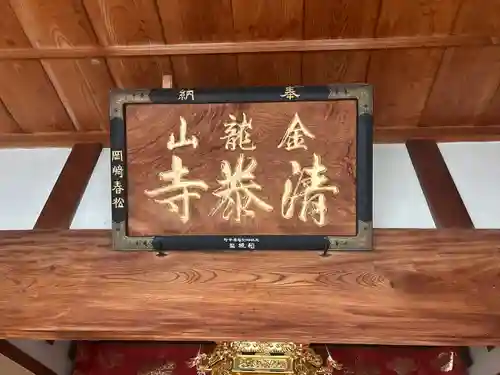 奉納
金龍山
清泰寺
岡嶋春松